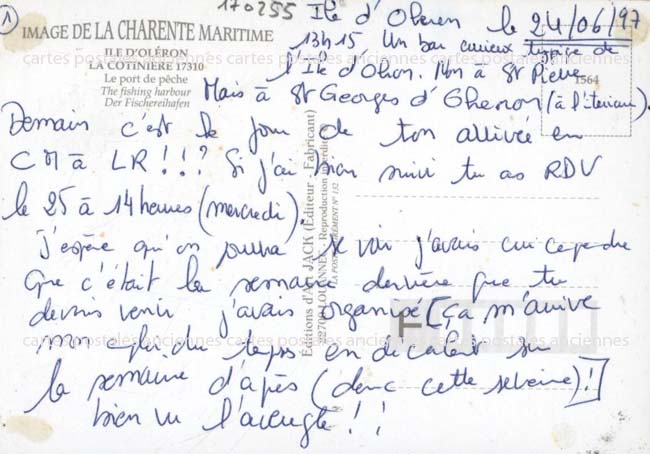 1
170255
IMAGE DE LA CHARENTE MARITIME
ILE D'OLÉRON
LA COTINIERE 17310
Le port de pêche
The fishing harbour
Der Fischereihafen
1564
Editions d'Art JACK (Éditeur - Fabricant)
Reproduction interdite
cartes postales anciennes cartes postales anciennes cartes postales anciennes
Ile d'Oleron le 24/06/97
13h15 Un bar curieux typique de
l'Ile d'Oléron. Non à St Pierre
Mais à St Georges d'Oleron (à l'intérieur).
Demain c'est le jour de ton arrivée en
CM à LR !!? Si j'ai bien suivi tu as RDV
le 25 à 14 heures (mercredi).
j'espère qu'on pourra se voir j'avais cru cependant
que c'était la semaine dernière que tu
devais venir j'avais organisé [ça m'arrive
mon du temps en décalant sur
la semaine d'après (donc cette semaine)!]
bien vu l'aveugle !!
cartes postales anciennes cartes postales anciennes cartes postales anciennes